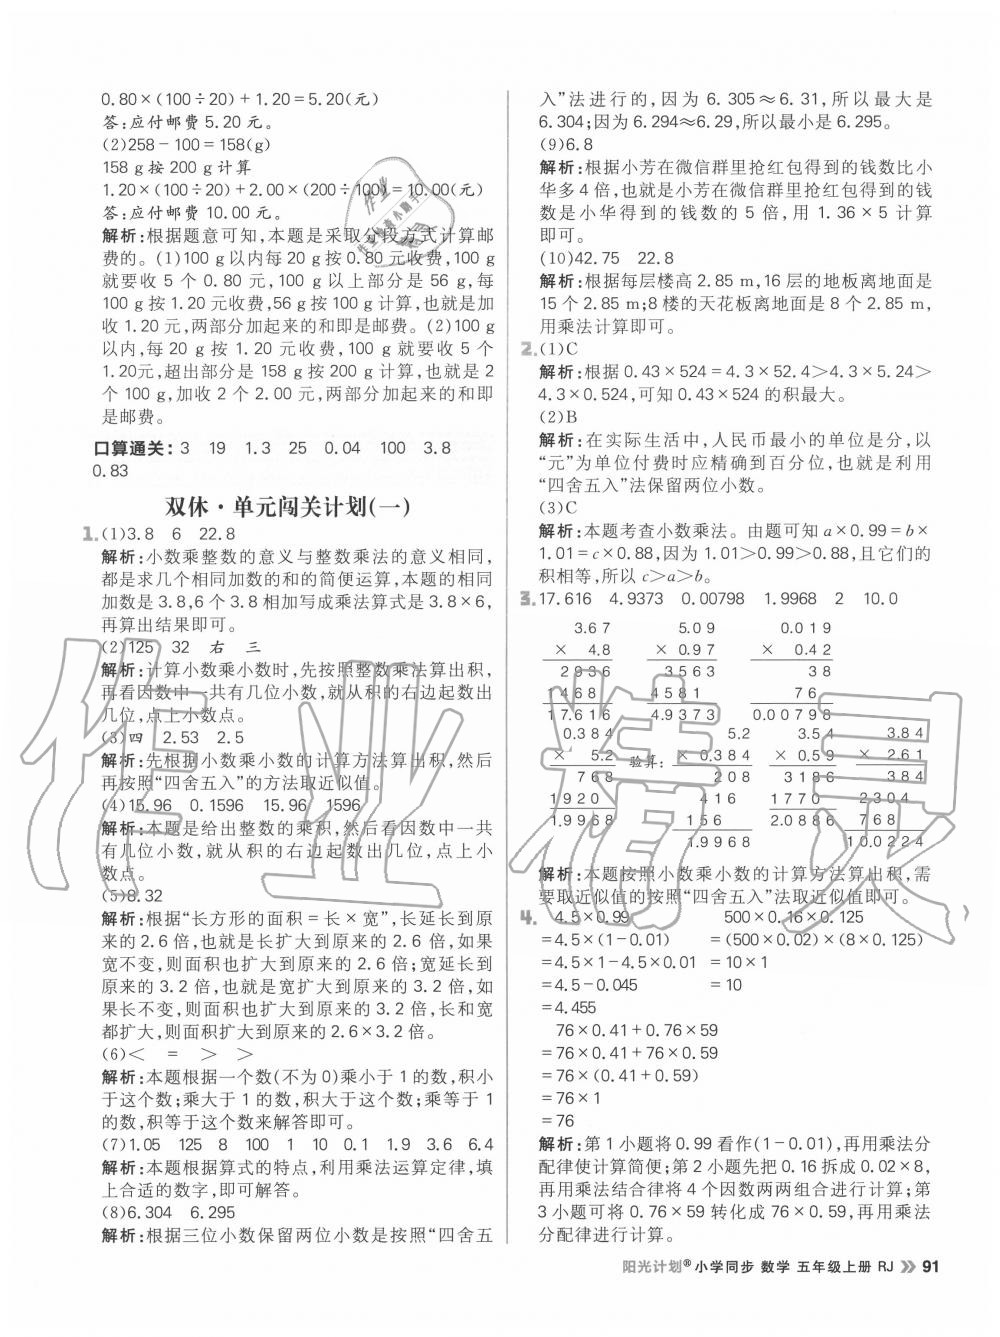 0.80×(100÷20)+1.20=5.20(元)
答:应付邮费 5.20 元。
(2)258-100=158(g)
158 g 按 200 g 计算
1.20×(100÷20)+2.00×(200÷100)=10.00(元)
答:应付邮费 10.00 元。
解析:根据题意可知,本题是采取分段方式计算邮
费的。(1)100 g以内每 20 g按 0.80 元收费,100 g
就要收 5 个 0.80 元,100 g以上部分是 56 g,每
100 g按 1.20 元收费,56 g按 100 g计算,也就是加
收 1.20 元,两部分加起来的和即是邮费。(2)100 g
以内,每 20 g 按 1.20 元收费,100 g 就要收 5 个
1.20元,超出部分是 158 g按 200 g计算,也就是 2
个 100 g,加收 2 个 2.00 元,两部分加起来的和即
是邮费。
口算通关:3 19 1.3 25 0.04 100 3.8
0.83
双休·单元闯关计划(一)
1.(1)3.8 6 22.8
解析:小数乘整数的意义与整数乘法的意义相同,
都是求几个相同加数的和的简便运算,本题的相同
加数是 3.8,6个 3.8 相加写成乘法算式是 3.8×6,
再算出结果即可。
(2)125 32 右 三
解析:计算小数乘小数时,先按照整数乘法算出积,
再看因数中一共有几位小数,就从积的右边起数出
几位,点上小数点。
(3)四 2.53 2.5
解析:先根据小数乘小数的计算方法算出积,然后
再按照“四舍五入”的方法取近似值。
(4)15.96 0.1596 15.96 1596
解析:本题是给出整数的乘积,然后看因数中一共
有几位小数,就从积的右边起数出几位,点上小
数点。
(5)8.32
解析:根据“长方形的面积=长×宽”,长延长到原
来的 2.6 倍,也就是长扩大到原来的 2.6 倍,如果
宽不变,则面积也扩大到原来的 2.6 倍;宽延长到
原来的 3.2 倍,也就是宽扩大到原来的 3.2 倍,如
果长不变,则面积也扩大到原来的 3.2 倍,长和宽
都扩大,则面积扩大到原来的 2.6×3.2 倍。
(6)< = > >
解析:本题根据一个数(不为 0)乘小于 1 的数,积小
于这个数;乘大于 1 的数,积大于这个数;乘等于 1
的数,积等于这个数来解答即可。
(7)1.05 125 8 100 1 10 0.1 1.9 3.6 6.4
解析:本题根据算式的特点,利用乘法运算定律,填
上合适的数字,即可解答。
(8)6.304 6.295
解析:根据三位小数保留两位小数是按照“四舍五
入”法进行的,因为 6.305≈6.31,所以最大是
6.304;因为 6.294≈6.29,所以最小是 6.295。
(9)6.8
解析:根据小芳在微信群里抢红包得到的钱数比小
华多 4 倍,也就是小芳在微信群里抢红包得到的钱
数是小华得到的钱数的 5 倍,用 1.36×5 计算
即可。
(10)42.75 22.8
解析:根据每层楼高 2.85 m,16 层的地板离地面是
15 个 2.85 m;8 楼的天花板离地面是 8 个 2.85 m,
用乘法计算即可。
2.(1)C
解析:根据 0.43×524=4.3×52.4>4.3×5.24>
4.3×0.524,可知 0.43×524 的积最大。
(2)B
解析:在实际生活中,人民币最小的单位是分,以
“元”为单位付费时应精确到百分位,也就是利用
“四舍五入”法保留两位小数。
(3)C
解析:本题考查小数乘法。由题可知 a×0.99=b×
1.01=c×0.88,因为 1.01>0.99>0.88,且它们的
积相等,所以 c>a>b。
3.17.616 4.9373 0.00798 1.9968 2 10.0
3.67 5.09 0.019
× 4.8 × 0.97 × 0.42
2936 3563 38
1468 4581 76
17.616 4.9373 0.00798
0.384 5.2 3.54 3.84
× 5.2 验算: × 0.384 × 0.59 × 2.61
768 208 3186 384
1920 416 1770 2304
1.9968 156 2.0886 768
1.9968 10.0224
解析:本题按照小数乘小数的计算方法算出积,需
要取近似值的按照“四舍五入”法取近似值即可。
4. 4.5×0.99 500×0.16×0.125
=4.5×(1-0.01) =(500×0.02)×(8×0.125)
=4.5×1-4.5×0.01 =10×1
=4.5-0.045 =10
=4.455
76×0.41+0.76×59
=76×0.41+76×0.59
=76×(0.41+0.59)
=76×1
=76
解析:第 1 小题将 0.99 看作(1-0.01),再用乘法分
配律使计算简便;第 2 小题先把 0.16 拆成 0.02×8,
再用乘法结合律将 4 个因数两两组合进行计算;第
3 小题可将 0.76×59 转化成 76×0.59,再用乘法
分配律进行计算。
阳光计划®小学同步 数学 五年级上册 RJ 91
作业精灵